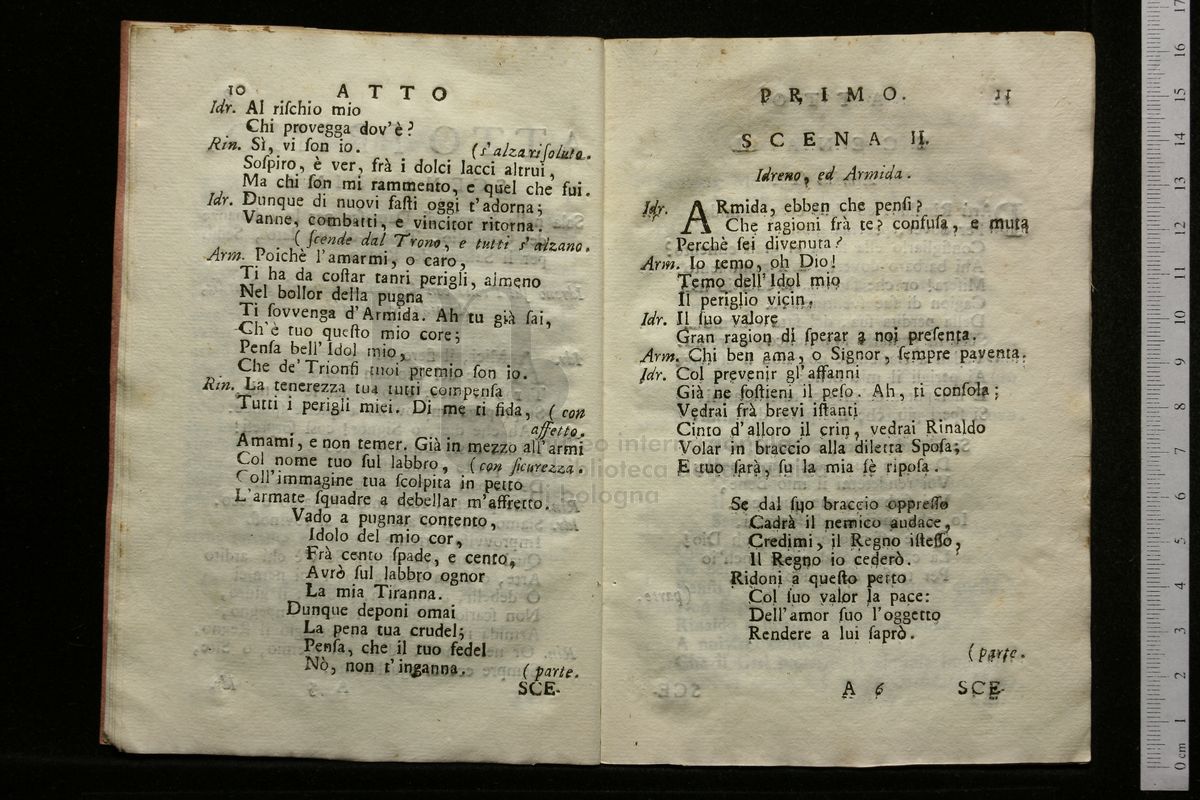 10 ATTO
Idr. Al riſchio mio
Chi provegga dov'è?
Rin. Sì, vi ſon io. (s'alza riſoluto.
Soſpiro, è ver, frà i dolci lacci altrui,
Ma chi ſon mi rammento, e quel che fui.
Idr. Dunque di nuovi faſti oggi t'adorna;
Vanne, combatti, e vincitor ritorna.
(ſcende dal Trono, e tutti s'alzano.
Arm. Poichè l'amarmi, o caro,
Ti ha da coſtar tanri perigli, almeno
Nel bollor della pugna
Ti ſovvenga d'Armida. Ah tu già ſai,
Ch'è tuo queſto mio core;
Penſa bell'Idol mio,
Che de' Trionfi tuoi premio ſon io.
Rin. La tenerezza tua tutti compenſa
Tutti i perigli miei. Di me ti fida, (con
affetto.
Amami, e non temer. Già in mezzo all'armi
Col nome tuo ſul labbro, (con ſicurezza.
Coll'immagine tua ſcolpita in petto
L'armate ſquadre a debellar m'affretto.
Vado a pugnar contento,
Idolo del mio cor,
Frà cento ſpade, e cento,
Avrò ſul labbro ognor
La mia Tiranna.
Dunque deponi omai
La pena tua crudel;
Penſa, che il tuo fedel
Nò, non t'inganna. (parte.
SCE-
PRIMO. 11
SCENA II.
Idreno, ed Armida.
Idr. ARmida, ebben che penſi?
Che ragioni frà te? confuſa, e muta
Perchè ſei divenuta?
Arm. Io temo, oh Dio!
Temo dell'Idol mio
Il periglio vicin.
Idr. Il ſuo valore
Gran ragion di ſperar a noi preſenta.
Arm. Chi ben ama, o Signor, ſempre paventa.
Idr. Col prevenir gl'affanni
Già ne ſoſtieni il peſo. Ah, ti conſola;
Vedrai frà brevi iſtanti
Cinto d'alloro il crin, vedrai Rinaldo
Volar in braccio alla diletta Spoſa;
E tuo ſarà, ſu la mia fè ripoſa.
Se dal ſuo braccio oppreſſo
Cadrà il nemico audace,
Credimi, il Regno iſteſſo,
Il Regno io cederò.
Ridoni a queſto petto
Col ſuo valor la pace:
Dell'amor ſuo l'oggetto
Rendere a lui ſaprò.
(parte.
A 6 SCE-